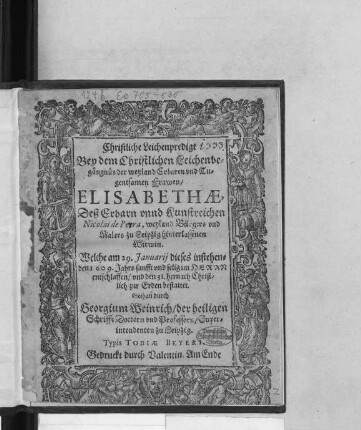 Christliche Leichenpredigt
Bey dem Christlichen Leichenbe-
gängnüs der weyland Erbaren und Tu-
gentsamen Frawen/
ELISABETHÆ,
Deß Erbarn vnnd Kunstreichen
Nicolai de Perra, weyland Bürgers vnd
Malers zu Leipzig hinterlassenen
Witwin.
Welche am 29. Januarij dieses instehen-
den 1609. Jahrs sanfft vnd selig im HERRN
entschlaffen/ vnd den 31. hernach Christ-
lich zur Erden bestattet.
Gethan durch
Georgium Weinrich/ der heiligen
Schrifft Doctorn vnd Professorn/ Super-
intendenten zu Leipzig.
Typis TOBIÆ BEYERI,
Gedruckt durch Valentin Am Ende